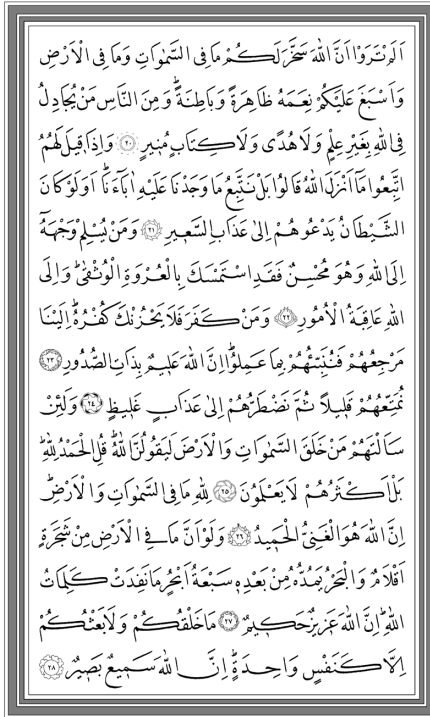 اَلَمْ تَرَوْا اَنَّ اللّٰهَ سَخَّرَ لَكُمْ مَا فِي السَّمٰوَاتِ وَمَا فِي الْاَرْضِ
وَاَسْبَغَ عَلَيْكُمْ نِعَمَهُ ظَاهِرَةً وَبَاطِنَةًۜ وَمِنَ النَّاسِ مَنْ يُجَادِلُ
فِي اللّٰهِ بِغَيْرِ عِلْمٍ وَلَا هُدًى وَلَا كِتَابٍ مُنٖيرٍ ﴿٢٠﴾ وَاِذَا قٖيلَ لَهُمُ
اتَّبِعُوا مَٓا اَنْزَلَ اللّٰهُ قَالُوا بَلْ نَتَّبِعُ مَا وَجَدْنَا عَلَيْهِ اٰبَٓاءَنَاۜ اَوَلَوْ كَانَ
الشَّيْطَانُ يَدْعُوهُمْ اِلٰى عَذَابِ السَّعٖيرِ ﴿٢١﴾ وَمَنْ يُسْلِمْ وَجْهَهُٓ
اِلَى اللّٰهِ وَهُوَ مُحْسِنٌ فَقَدِ اسْتَمْسَكَ بِالْعُرْوَةِ الْوُثْقٰىۜ وَاِلَى
اللّٰهِ عَاقِبَةُ الْاُمُورِ ﴿٢٢﴾ وَمَنْ كَفَرَ فَلَا يَحْزُنْكَ كُفْرُهُۜ اِلَيْنَا
مَرْجِعُهُمْ فَنُنَبِّئُهُمْ بِمَا عَمِلُواۜ اِنَّ اللّٰهَ عَلٖيمٌ بِذَاتِ الصُّدُورِ ﴿٢٣﴾
نُمَتِّعُهُمْ قَلٖيلاً ثُمَّ نَضْطَرُّهُمْ اِلٰى عَذَابٍ غَلٖيظٍ ﴿٢٤﴾ وَلَئِنْ
سَاَلْتَهُمْ مَنْ خَلَقَ السَّمٰوَاتِ وَالْاَرْضَ لَيَقُولُنَّ اللّٰهُۜ قُلِ الْحَمْدُ لِلّٰهِۜ
بَلْ اَكْثَرُهُمْ لَا يَعْلَمُونَ ﴿٢٥﴾ لِلّٰهِ مَا فِي السَّمٰوَاتِ وَالْاَرْضِۜ
اِنَّ اللّٰهَ هُوَ الْغَنِيُّ الْحَمٖيدُ ﴿٢٦﴾ وَلَوْ اَنَّ مَا فِي الْاَرْضِ مِنْ شَجَرَةٍ
اَقْلَامٌ وَالْبَحْرُ يَمُدُّهُ مِنْ بَعْدِهٖ سَبْعَةُ اَبْحُرٍ مَا نَفِدَتْ كَلِمَاتُ
اللّٰهِۜ اِنَّ اللّٰهَ عَزٖيزٌ حَكٖيمٌ ﴿٢٧﴾ مَا خَلْقُكُمْ وَلَا بَعْثُكُمْ
اِلَّا كَنَفْسٍ وَاحِدَةٍۜ اِنَّ اللّٰهَ سَمٖيعٌ بَصٖيرٌ ﴿٢٨﴾